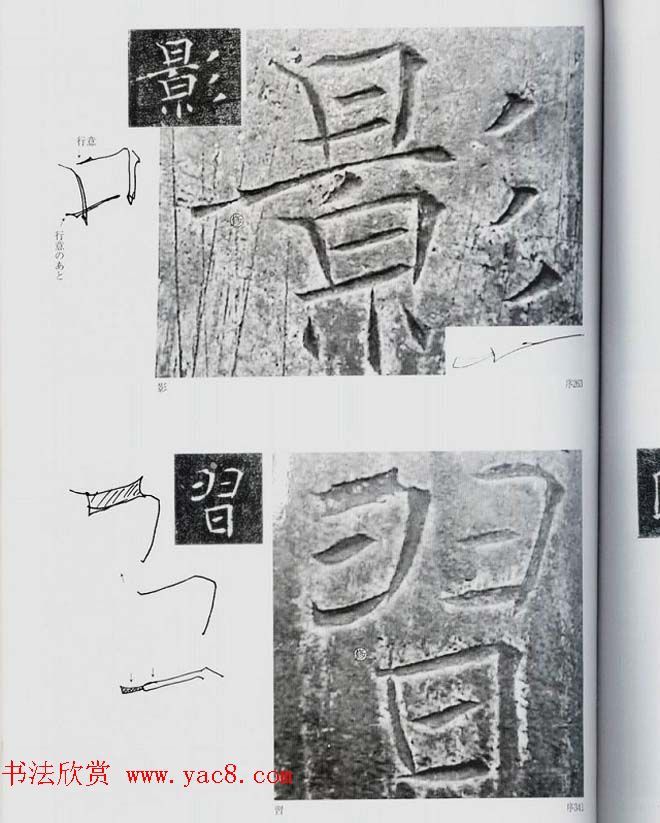 影
行意
行意のあと
影
影
序263
習
習
習
序343
书法欣赏 www.yac8.com